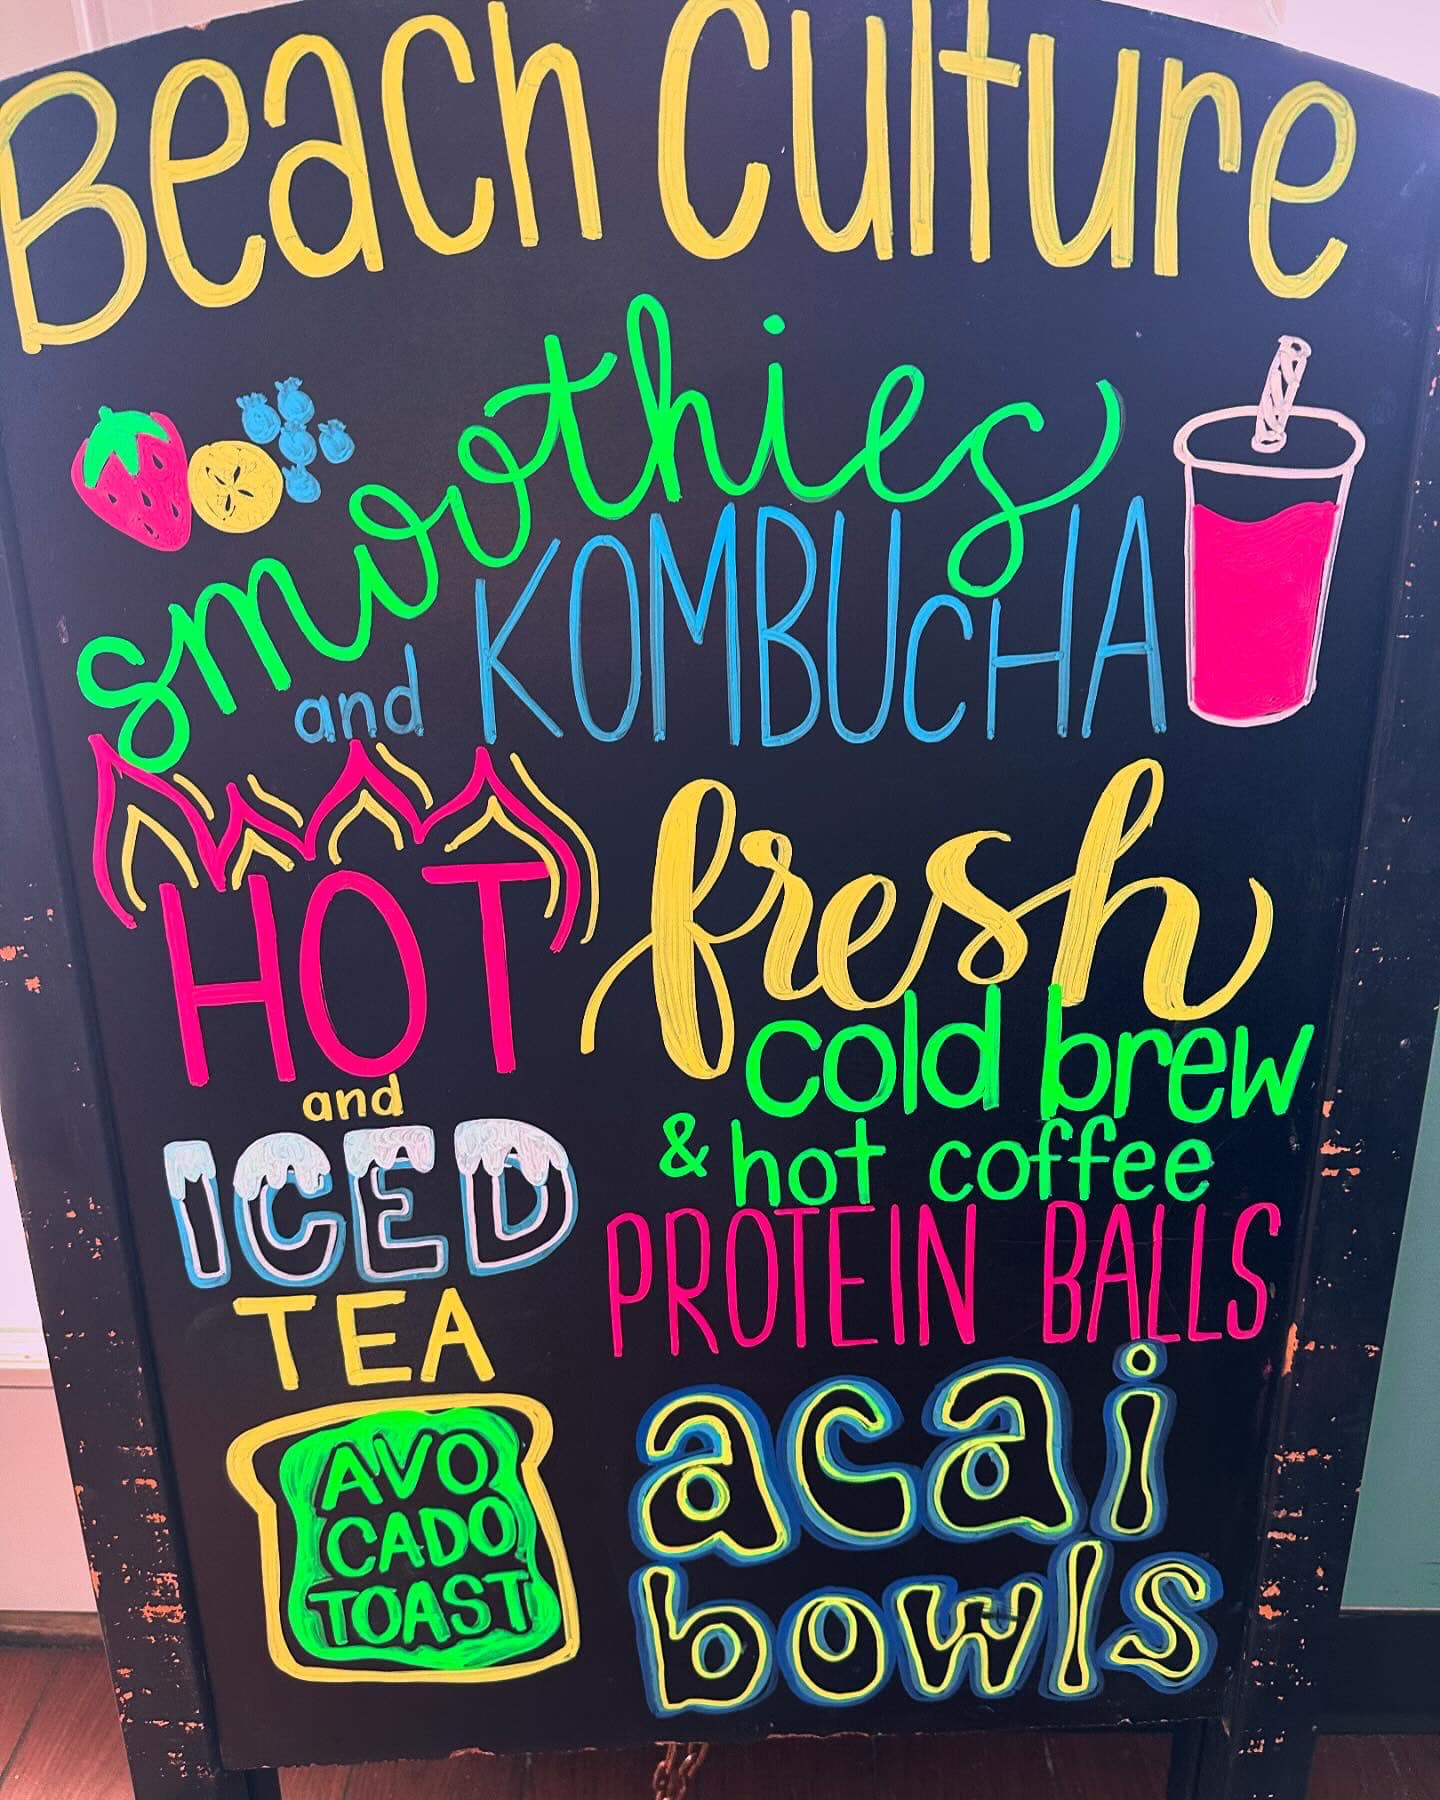 Beach Culture
smoothies
and KOMBUCHA
HOT
and
ICED
TEA
fresh
cold brew
& hot coffee
PROTEIN BALLS
AVO
CADO
TOAST
acai
bowls